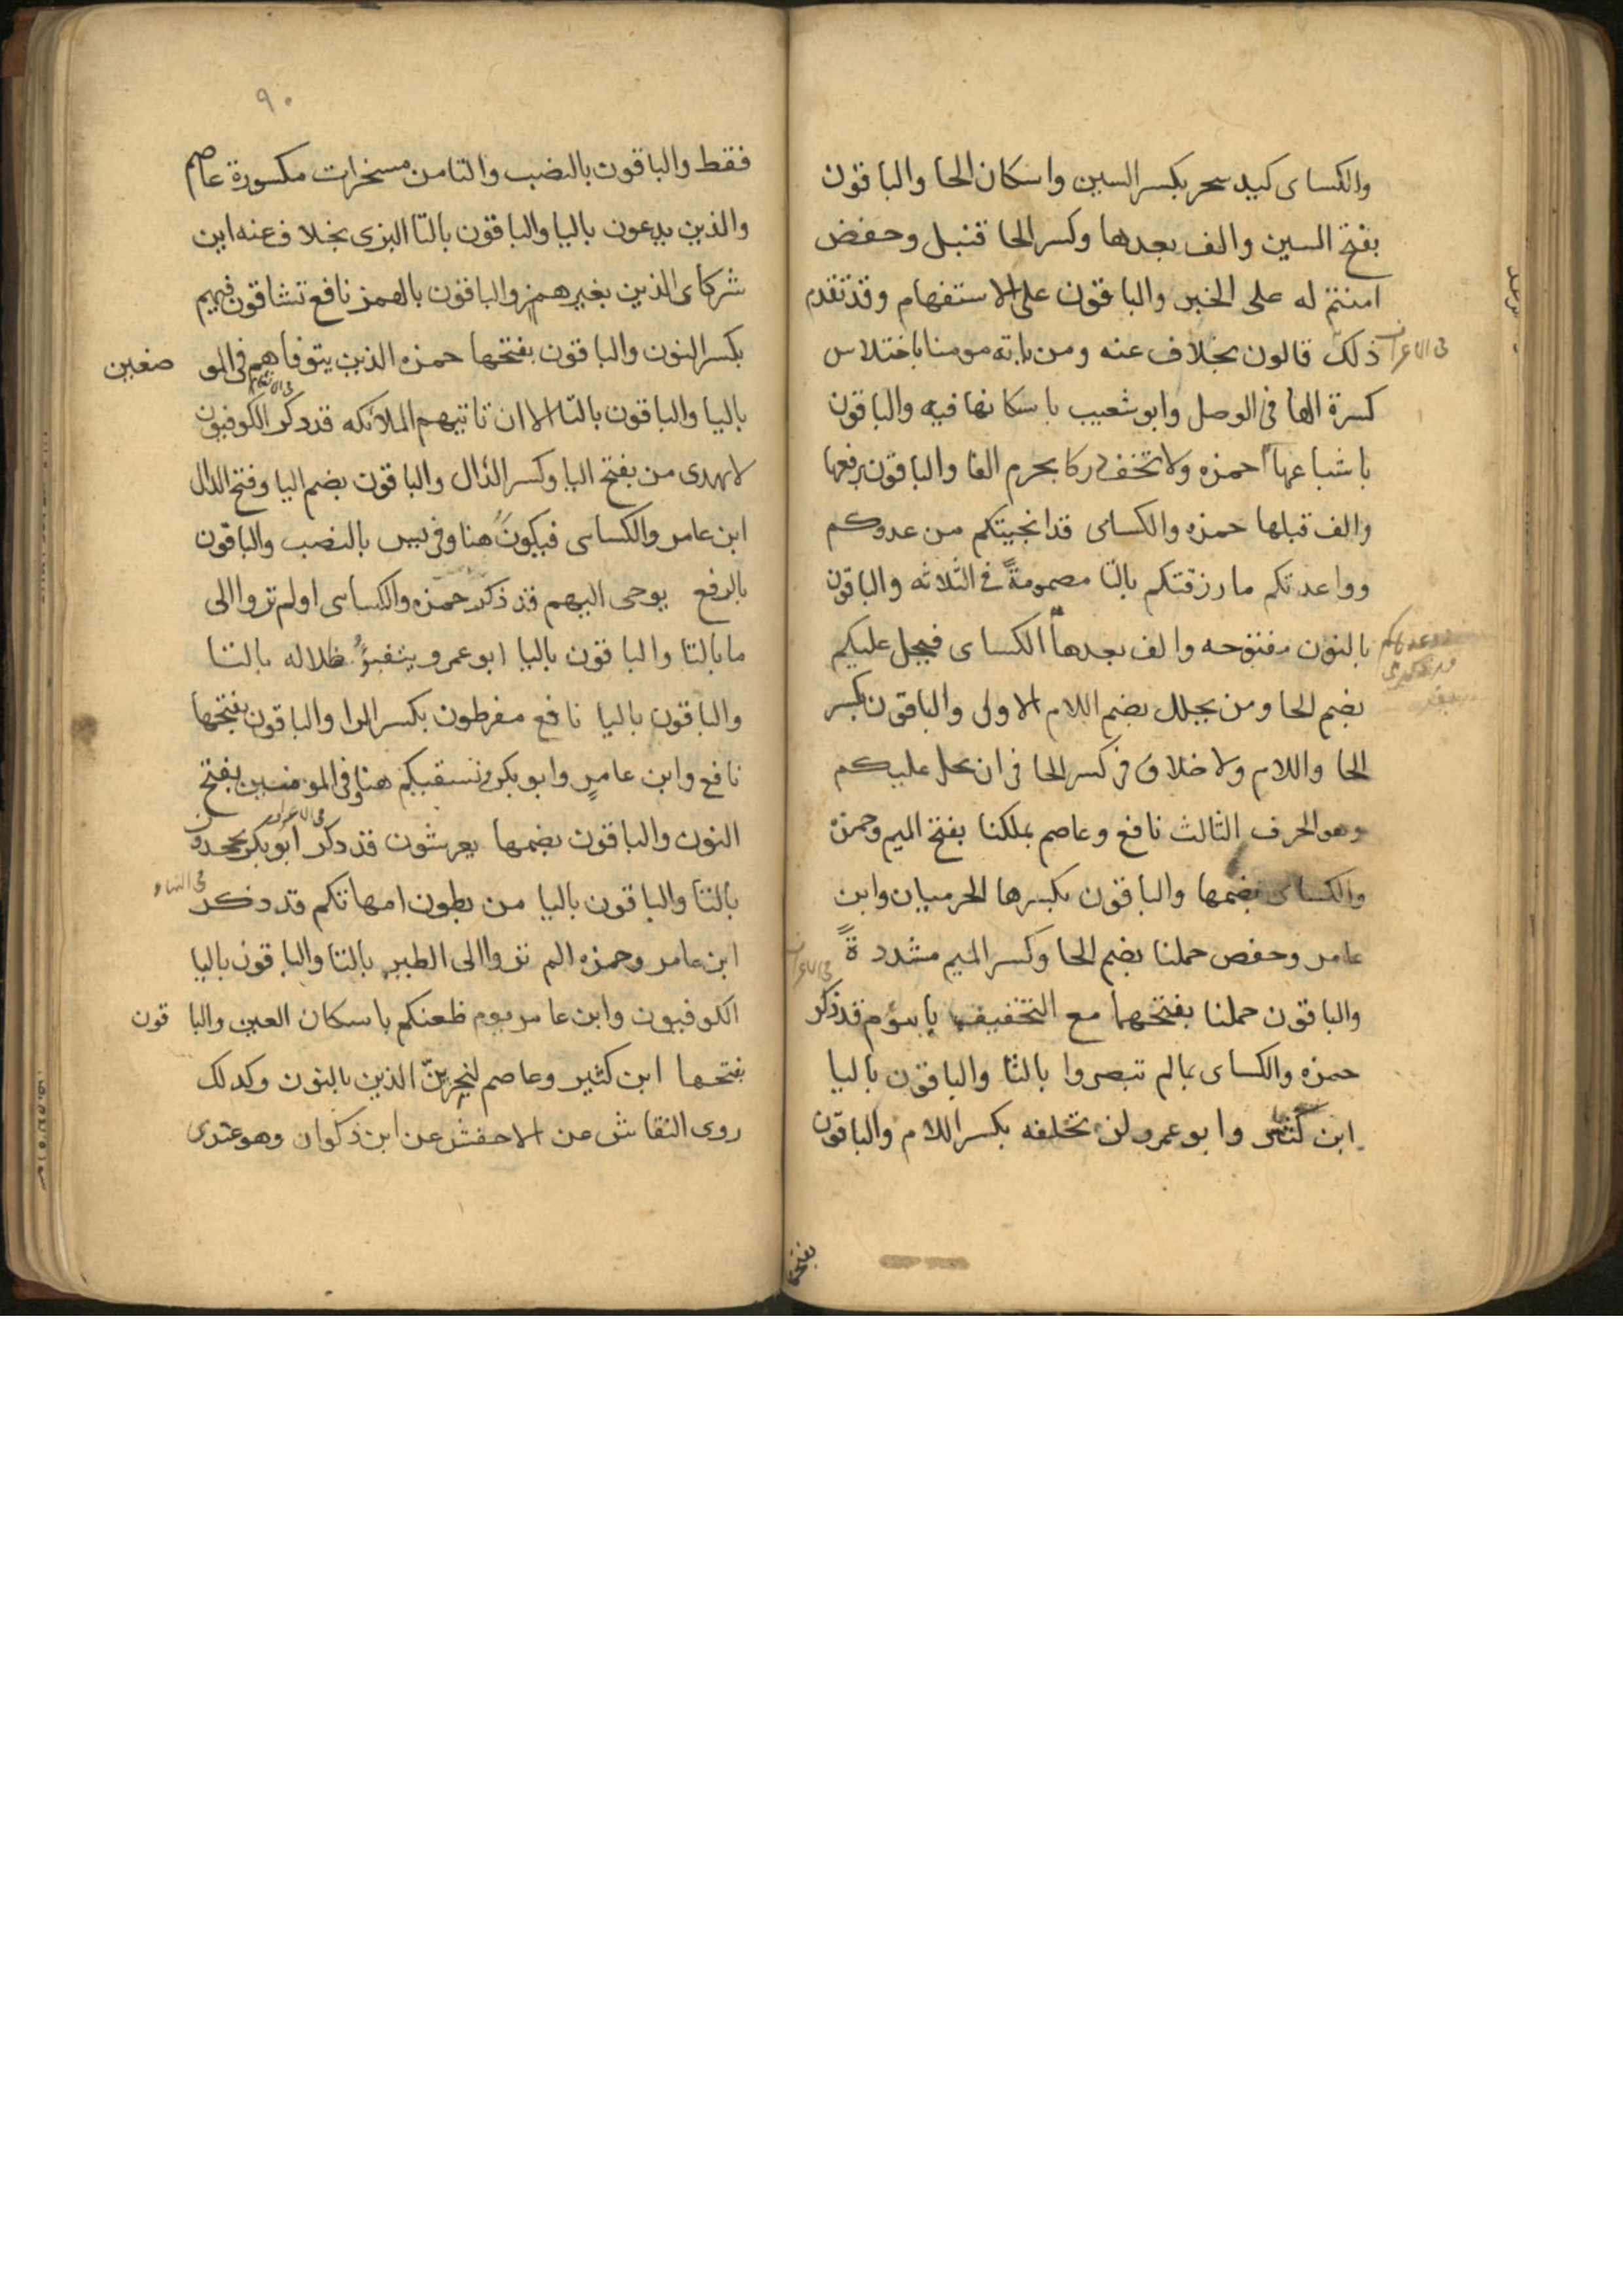 والكساى كيد سحر بكسر السين واسكان الحا والباقون
بفتح السين والف بعدها وكسر الحا قنبل وحفص
امنتم له على الخبر والباقون على الاستفهام وقد تقدم
ذلك قالون بخلاف عنه ومن ياته مومنا باختلاس
فى الاعراف
كسرة الها فى الوصل وابو شعيب باسكانها فيه والباقون
باشباعها حمزه ولا تخف دركا بجزم الفا والباقون برفعها
والف قبلها حمزه والكساى قد انجيتكم من عدوكم
وواعدتكم ما رزقتكم بالتا مضمومة فى الثلاثه والباقون
بالنون مفتوحه والف بعدها الكساى فيحل عليكم
بضم الحا ومن يحلل بضم اللام الاولى والباقون بكسر
الحا واللام ولا خلاف فى كسر الحا فى ان يحل عليكم
وهو الحرف الثالث نافع وعاصم بملكنا بفتح الميم وحمزة
والكساى بضمها والباقون بكسرها الحرميان وابن
عامر وحفص حملنا بضم الحا وكسر الميم مشددة
والباقون حملنا بفتحهما مع التخفيف يابنؤم قد ذكر
فى الاعراف
حمزه والكساى بمالم تبصروا بالتا والباقون باليا
ابن كثير وابو عمرو لن تخلفه بكسر اللام والباقون
بفتحها
٩٠
فقط والباقون بالنصب والتا من مسخرات مكسورة عاصم
والذين يدعون باليا والباقون بالتا البزى بخلاف عنه اين
شركاى الذين بغير همز والباقون بالهمز نافع تشاقون فيهم
بكسر النون والباقون بفتحها حمزه الذين يتوفاهم فى المو ضعين
باليا والباقون بالتا الا ان تاتيهم الملائكه قد ذكر الكوفيون
فى الانعام
لا يهدى من بفتح اليا وكسر الدال والباقون بضم اليا وفتح الدال
ابن عامر والكساى فيكون هنا وفى يس بالنصب والباقون
بالرفع يوحى اليهم قد ذكر حمزه والكساى اولم تروا الى
ما بالتا والباقون باليا ابو عمرو يتفيؤ ظلاله بالتا
والباقون باليا نافع مفرطون بكسر الرا والباقون بفتحها
نافع وابن عامر وابو بكر نسقيكم هنا وفى المومنين بفتح
النون والباقون بضمها يعرشون قد ذكر ابو بكر يجحدون
فى الاعراف
بالتا والباقون باليا من بطون امهاتكم قد ذكر
فى النساء
ابن عامر وحمزه الم تروا الى الطير بالتا والباقون باليا
الكوفيون وابن عامر يوم ظعنكم باسكان العين والبا قون
بفتحها ابن كثير وعاصم لنجزين الذين بالنون وكدلك
روى النقاش عن الاخفش عن ابن ذكوان وهو عندى